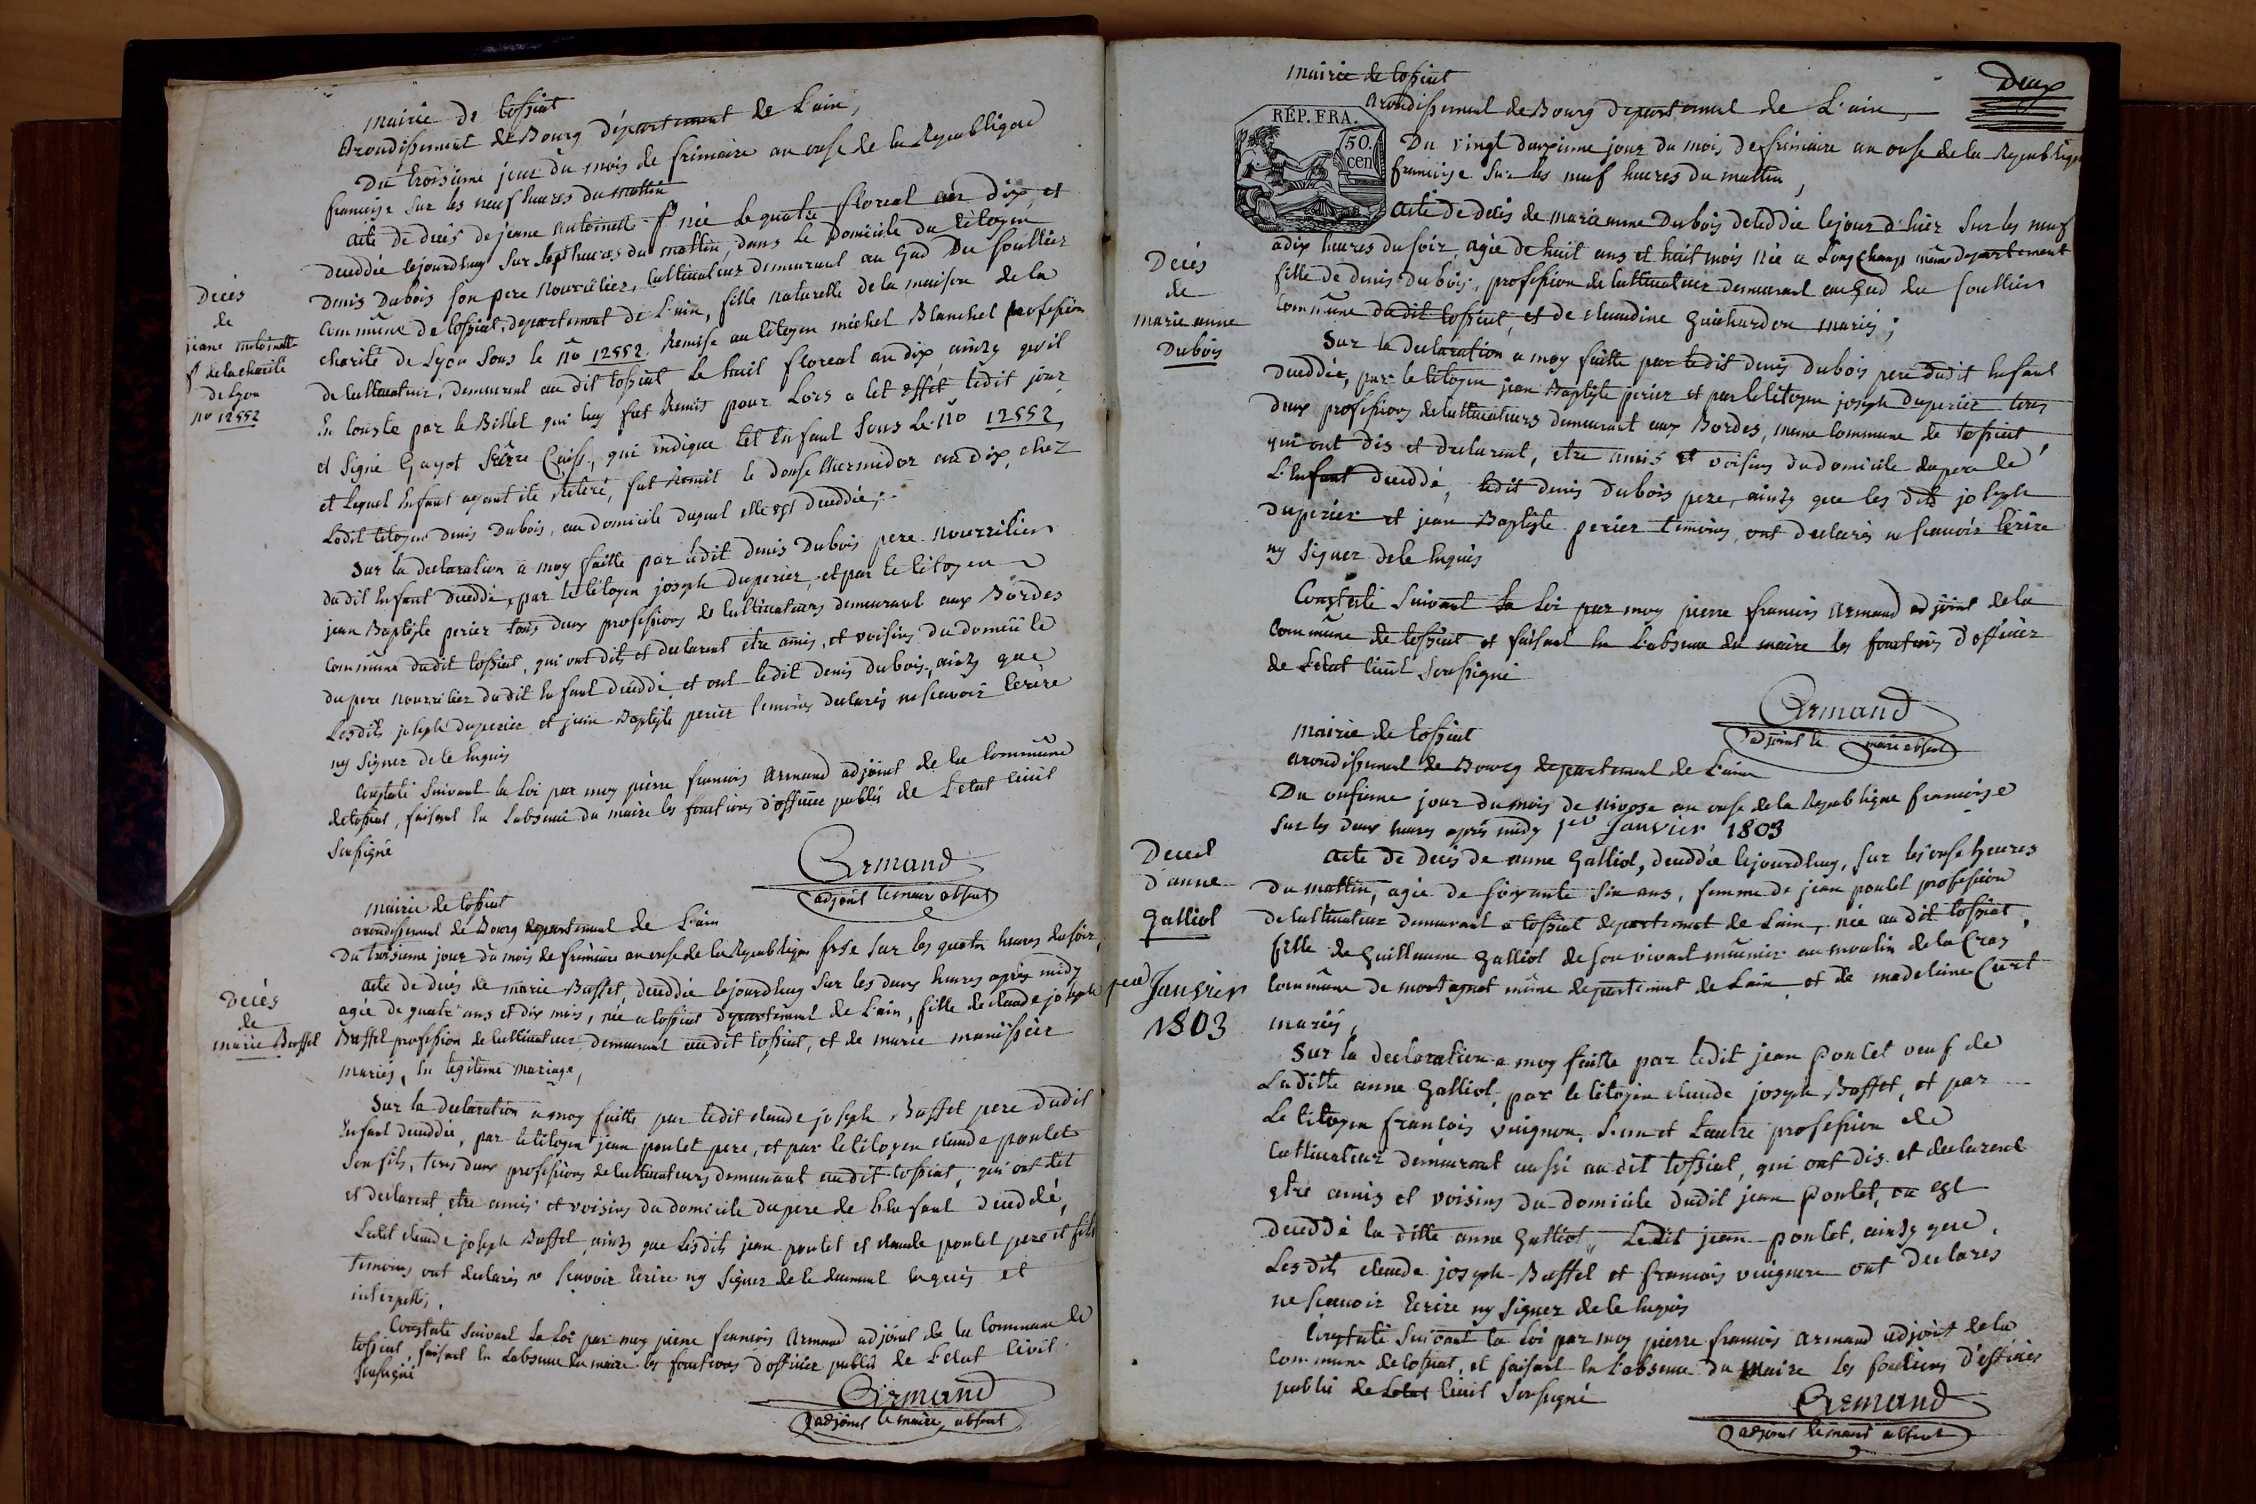 mairie de tossiat
Arondissement de Bourg département de L'ain,
Du troisieme jour du mois de frimaire an onse de la Republique
françoise sur les neuf heures du mattin
acte de decès de jeane antoinette fe née le quatre floreal an dix, et
deceddée cejourdhuy sur sept heures du mattin, dans le domicile du citoyen
Denis Dubois son pere nourricier, cultivateur demeurant au Gad du soullier
commune de tossiat, departement de L'ain, fille naturelle de la maison de la
charité de Lyon sous le no 12552. Remise au citoyen michel Blanchet profession
de cultivateur, demeurant au dit tossiat le huit floreal an dix, ainzy qu'il
En conste par le Billet qui luy fut Remis pour Lors a cet effet ledit jour
et signé Gayot, qui indique cet Enfant sous Le no 12552,
et lequel Enfant ayant été retiré, fut Remit le douse thermidor an dix, chez
Ledit citoyen Denis Dubois, au domicile duquel elle est deceddée;
Decès
de
jeane antoinette
fe de la charité
de Lyon
no 12552
Sur la declaration à moy faitte par ledit denis Dubois pere nourricier
dudit Enfant deceddé, par le citoyen joseph Duperier, et par le citoyen
jean Baptiste perier tous deux professions de cultivateurs demeurant aux Bordes
commune dudit tossiat, qui ont dits et declarent etre amis, et voisins du domicile
du pere nourricier dudit Enfant deceddé, et ont ledit denis dubois, ainzy que
Lesdits joseph duperier et jean Baptiste perier temoins declarés ne scavoir Ecrire
ny signer de ce Enquis
Constaté suivant la Loi par moy pierre francois Armand adjoint de la commune
de tossiat, faisant En L'absence du maire les fonctions d'officier public de L'etat civil
soussigné
Armand
adjoint le maire absent
mairie de tossiat
arondissement de Bourg departement de L'ain
Du troisieme jour du mois de frimaire an onse de la Republique frse sur les quatre heures du soir,
acte de decès de marie Buffet, deceddée cejourdhuy sur les deux heures après midy
agée de quatre ans et dix mois, née a tossiat departement de L'ain, fille de claude joseph
Buffet profession de cultivateur demeurant audit tossiat, et de marie manissier
mariés, En legitime mariage,
Decès
de
marie Buffet
Sur la declaration a moy faitte par ledit claude joseph Buffet pere dudit
Enfant deceddée, par le citoyen jean poulet pere, et par le citoyen claude poulet
son fils, tous deux professions de cultivateurs demeurant audit tossiat, qui ont dit
et declarent etre amis et voisins du domicile du pere de L'Enfant deceddé,
Ledit claude joseph Buffet ainzy que Lesdits jean poulet et claude poulet pere et fils
temoins ont declarés ne scavoir Ecrire ny signer de ce dument Enquis et
interpellés,
Constaté suivant La Loi par moy pierre francois Armand adjoint de la commune de
tossiat, faisant En L'absence du maire les fonctions d'officier public de L'etat civil
soussigné
Armand
adjoint le maire absent
Deux
mairie de tossiat
Arondissement de Bourg departement de L'ain,
REP. FRA.
50.
cen
Du vingt deuxieme jour du mois de frimaire an onse de la Republique
francoise sur les neuf heures du mattin,
acte de decès de marie anne Dubois deceddée le jour d'hier sur les neuf
a dix heures du soir, agée de huit ans et huit mois née a Longchamp même departement
fille de denis Dubois, profession de cultivateur demeurant au Gad du soullier
commune dudit tossiat, et de claudine Guichardon mariés;
Decès
de
marie anne
Dubois
Sur la declaration a moy faitte par ledit denis dubois pere dudit Enfant
deceddée, par le citoyen jean Baptiste perier et par le citoyen joseph duperier tous
deux professions de cultivateurs demeurant aux Bordes, meme commune de tossiat
qui ont dis et declarent, etre amis et voisins du domicile du pere de
L'Enfant deceddé, ledit denis dubois pere, ainzy que les dits joseph
duperier et jean Baptiste perier temoins, ont declarés ne scavoir Ecrire
ny signer de ce Enquis
Constaté suivant La Loi par moy pierre francois Armand adjoint de la
commune de tossiat et faisant En L'absence du maire les fonctions d'officier
de L'etat civil soussigné
Armand
adjoint le maire absent
mairie de tossiat
arondissement de Bourg departement de L'ain
Du onsieme jour du mois de nivose an onse de la Republique francoise
sur les deux heures après midy 1er Janvier 1803
acte de decès de anne Galliot, deceddée cejourdhuy, sur les onse heures
du mattin, agée de soixante six ans, femme de jean poulet profession
de cultivateur demeurant a tossiat departement de L'ain, née au dit tossiat,
fille de Guillaume Galliot de son vivant mûnier au moulin de la Cras
commune de montagnat même departement de L'ain et de madelaine Curt
mariés,
Decest
d'anne
Galliot
1er Janvier
1803
Sur la declaration a moy faitte par ledit jean Poulet veuf de
Laditte anne Galliot, par le citoyen claude joseph Buffet, et par
Le citoyen françois vuignon, L'un et Lautre profession de
cultivateur demeurant aussi au dit tossiat, qui ont dis et declarent
etre amis et voisins du domicile dudit jean Poulet, ou est
deceddé la ditte anne Galliot, Ledit jean poulet, ainzy que
Lesdits claude joseph Buffet et francois vuignon ont declarés
ne scavoir Ecrire ny signer de ce Enquis
Constaté suivant la Loi par moy pierre francois Armand adjoint de la
commune de tossiat, et faisant En L'absence du maire les fonctions d'officier
public de L'etat civil soussigné
Armand
adjoint le maire absent